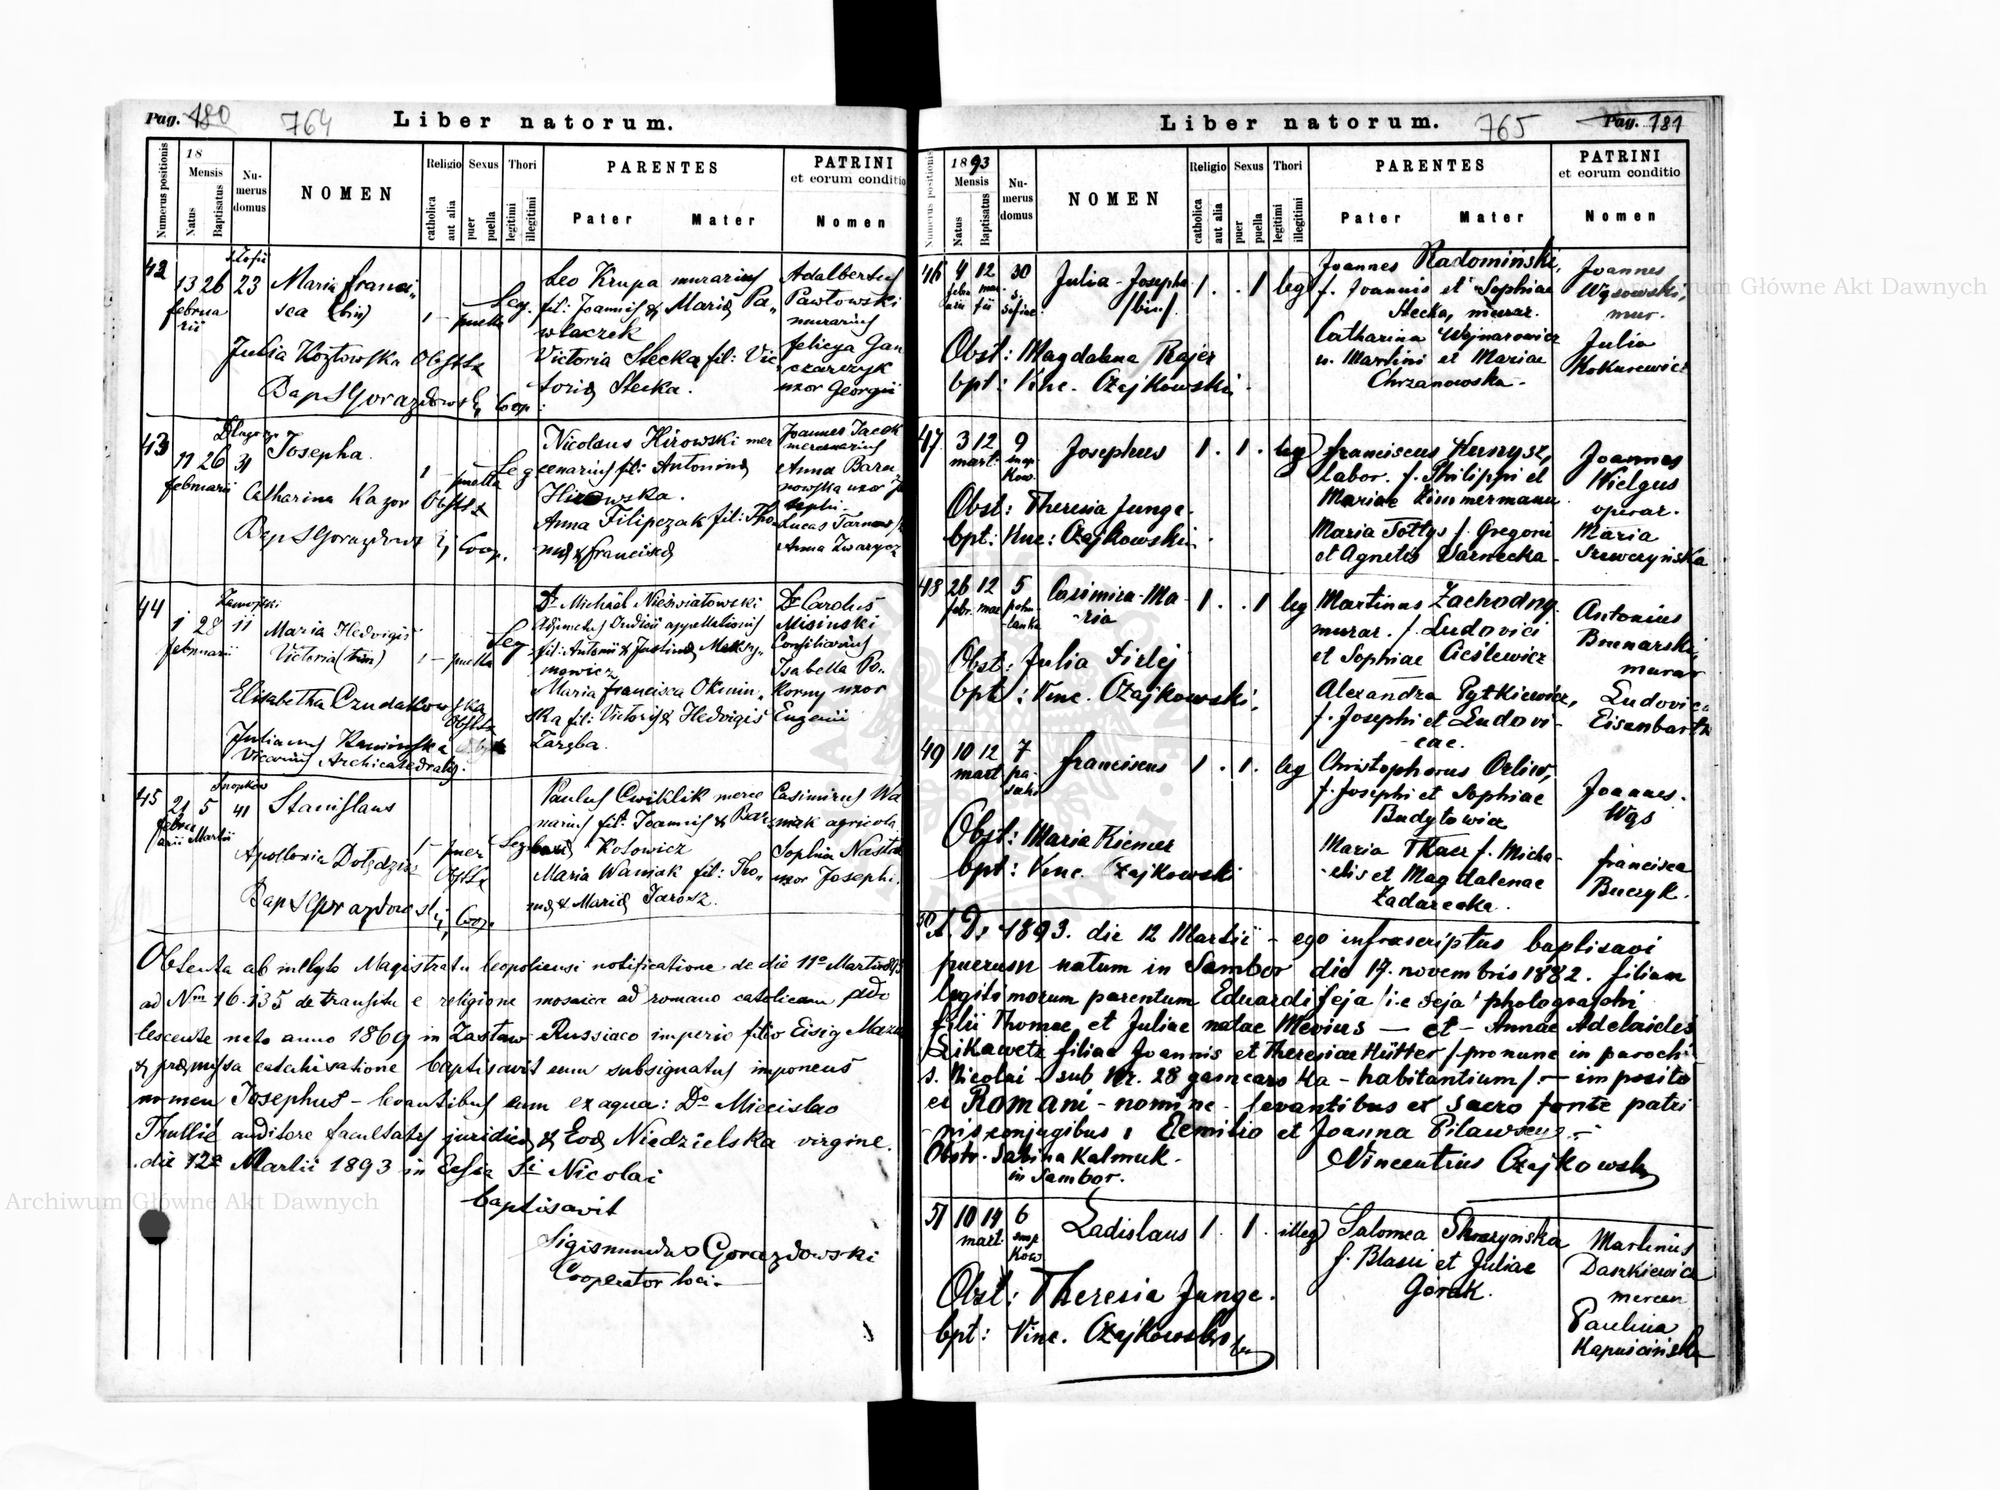 Pag. 180 764 Liber natorum.
Numerus positionis
18
Mensis
Natus
Baptisatus
Numerus domus
NOMEN
Religio
catholica
aut alia
Sexus
puer
puella
Thori
legitimi
illegitimi
PARENTES
Pater Mater
PATRINI
et eorum conditio
Nomen
42
13 26 23
februarii
Maria francisca (bin)
1 puella Leg.
Julia Kozłowska Obsttx
Bap SGorazdowski Coop.
Leo Krupa murarius
fil: Joannis & Mariæ Pa„
wlaczek
Victoria Stecka fil: Vic
toriæ Stecka.
Adalbertus
Pawłowski
murarius
felicya Gan
czarczyk
uxor Georgii
43
11 26 31
februarii
Josepha
1 puella Leg
Catharina Kazor Obsttx
Bap SGorazdowski Coop.
Nicolaus Hirowski mer
cenarius fil: Antoninæ
Hirowska.
Anna Filipczak fil: Tho
mæ & franciscæ
Joannes Jacek
mercenarius
Anna Bara
nowska uxor Jo
sephi
Lucas Tarnaw
Anna Zwarycz
44
1 28 11
februarii
Maria Hedvigis
Victoria (trin)
1 puella Leg
Elisabetha Czudakowska
Obsttx
Julianus Kaminski
Vicarius Archicatedralis.
Dr Michael Nieświatowski
Adjunctus Judicii appellationis
fil: Antonii & Justinæ Maksy„
mowicz
Maria francisca Okmin„
ska fil: Victoris & Hedvigis
Zaręba.
Dr Carolus
Misinski
Consiliarius
Isabella Po„
korny uxor
Eugenii
45
21 5 41
februarii Martii
Stanislaus
1 puer Leg
Apollonia Dołędzi Obsttx
Bap SGorazdowski, Coop.
Paulus Cwiklik merce
narius fil: Joannis & Bar
baræ Kotowicz
Maria Waniak fil: Tho„
mæ & Mariæ Jarosz.
Casimirus Wa
niak agricola
Sophia Nast
uxor Josephi.
Obtenta ab inclyto Magistratu leopoliensi notificatione de die 11o Martii 1893
ad Nm 16.135 de transitu e religione mosaica ad romano catolicam ado
lescente nato anno 1869 in Zasław Russiaco imperio filio Eisig Mazu
& præmissa catechisatione baptisavit eum subsignatus imponens
nomen Josephus – levantibus eum ex aqua: Do Miecislao
Thullie auditore facultatis juridicæ & Evæ Niedzielska virgine.
die 12a Martii 1893 in Eclia Sti Nicolai
baptisavit
Sigismundus Gorazdowski
Cooperator loci
Liber natorum. 765 Pag. 181
Numerus positionis
1893
Mensis
Natus
Baptisatus
Numerus domus
NOMEN
Religio
catholica
aut alia
Sexus
puer
puella
Thori
legitimi
illegitimi
PARENTES
Pater Mater
PATRINI
et eorum conditio
Nomen
46 4 12 30 Julia-Josepha 1 . . 1 leg
/bin/
Obst: Magdalena Rajer
bpt: Vinc. Czajkowski
Joannes Radomiński,
f. Joannis et Sophiae
Stecka, murar.
Catharina Wojnarowicz
n. Martini et Mariae
Chrzanowska
Joannes
Wąsowski,
mur.
Julia
Kokurewicz
47 3 12 9 Josephus 1 . 1 . leg
mart:
Obst: Theresia Junge.
bpt: Vinc: Czajkowski
franciscus Hunysz,
labor. f. Philippi et
Mariae Zimmermann
Maria Tottys f. Gregorii
et Agnetis Darnecka
Joannes
Wielgus
operar.
Maria
Szewczyńska
48 26 12 5 Casimira-Ma- 1 . . 1 leg
febr. mar -ria
Obst: Julia Firlej
bpt: Vinc. Czajkowski,
Martinus Zachodny.
murar. f. Ludovici
et Sophiae Cieślewicz
Alexandra Pytkiewicz,
f. Josephi et Ludovi-
cae.
Antonius
Bucnarski
murar
Ludovica
Eisenbarth
49 10 12 7 franciscus 1 . 1 . leg
mart
Obst: Maria Riemer
bpt: Vinc. Czajkowski
Christophorus Orliw,
f. Josephi et Sophiae
Budytowicz
Maria Tkacz f. Micha-
elis et Magdalenae
Zadarecka.
Joannes
Wąs
francisca
Buczyk.
50 A. D. 1893. die 12 Martii – ego infrascriptus baptisavi
puerum natum in Sambor die 17. novembris 1882. filium
legitimorum parentum Eduardi feja /i.e Seja/ photographi
filii Thomae et Juliae natae Mevius – et – Annae Adelaides
Likawetz filiae Joannis et Theresiae Hütter /pronunc in paroch:
s. Nicolai – sub Nr. 28 gasncars ka – habitantium/. – imposito
ei Romani – nomine – levantibus ex sacro fonte patri
nis conjugibus: Aemilio et Joanna Pilawscy.
Obstr. Sabina Kalmuk.
in Sambor.
Vincentius Czajkowski
51 10 14 6 Ladislaus 1 . 1 . illeg
mart.
Obst: Theresia Junge.
bpt: Vinc. Czajkowski
Salomea Skrzynska
f. Blasii et Juliae
Gorak.
Martinus
Daszkiewicz
mercen
Paulina
Kapuścińska
Archiwum Główne Akt Dawnych
Archiwum Główne Akt Dawnych